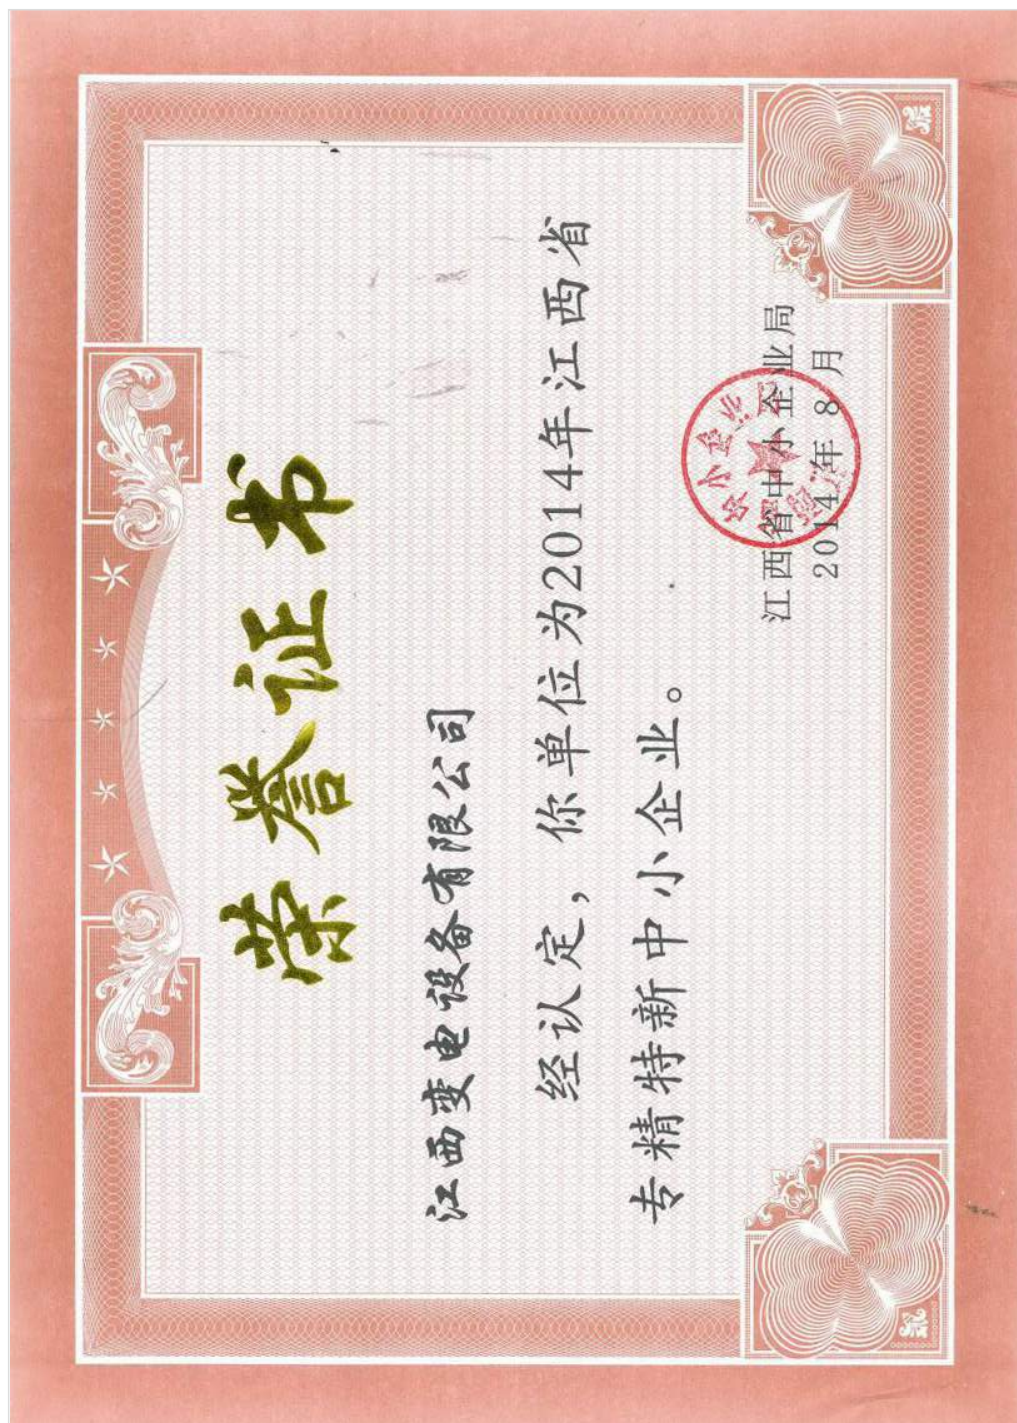 荣誉证书
江西变电设备有限公司
经认定，你单位为2014年江西省
专精特新中小企业。
江西省中小企业局
2014年8月